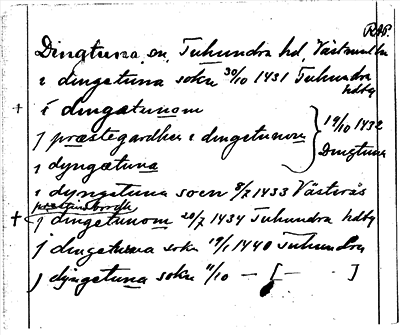 RAP.
Dingtuna, sn, Tuhundra hd, Västmanl län
i dingetuna sokn 30/10 1431 Tuhundra hdbg
+ i dingætunom
j præstegardhen i dingetunom } 19/10 1432 Dingtuna
i dyngætuna
i dyngetuna socn 8/7 1433 Västerås
+ j dingetunom 20/7 1434 Tuhundra hdbg
j dingetuna sokn 19/1 1440 Tuhundra
j dyngetuna sokn 11/10 — [— ]